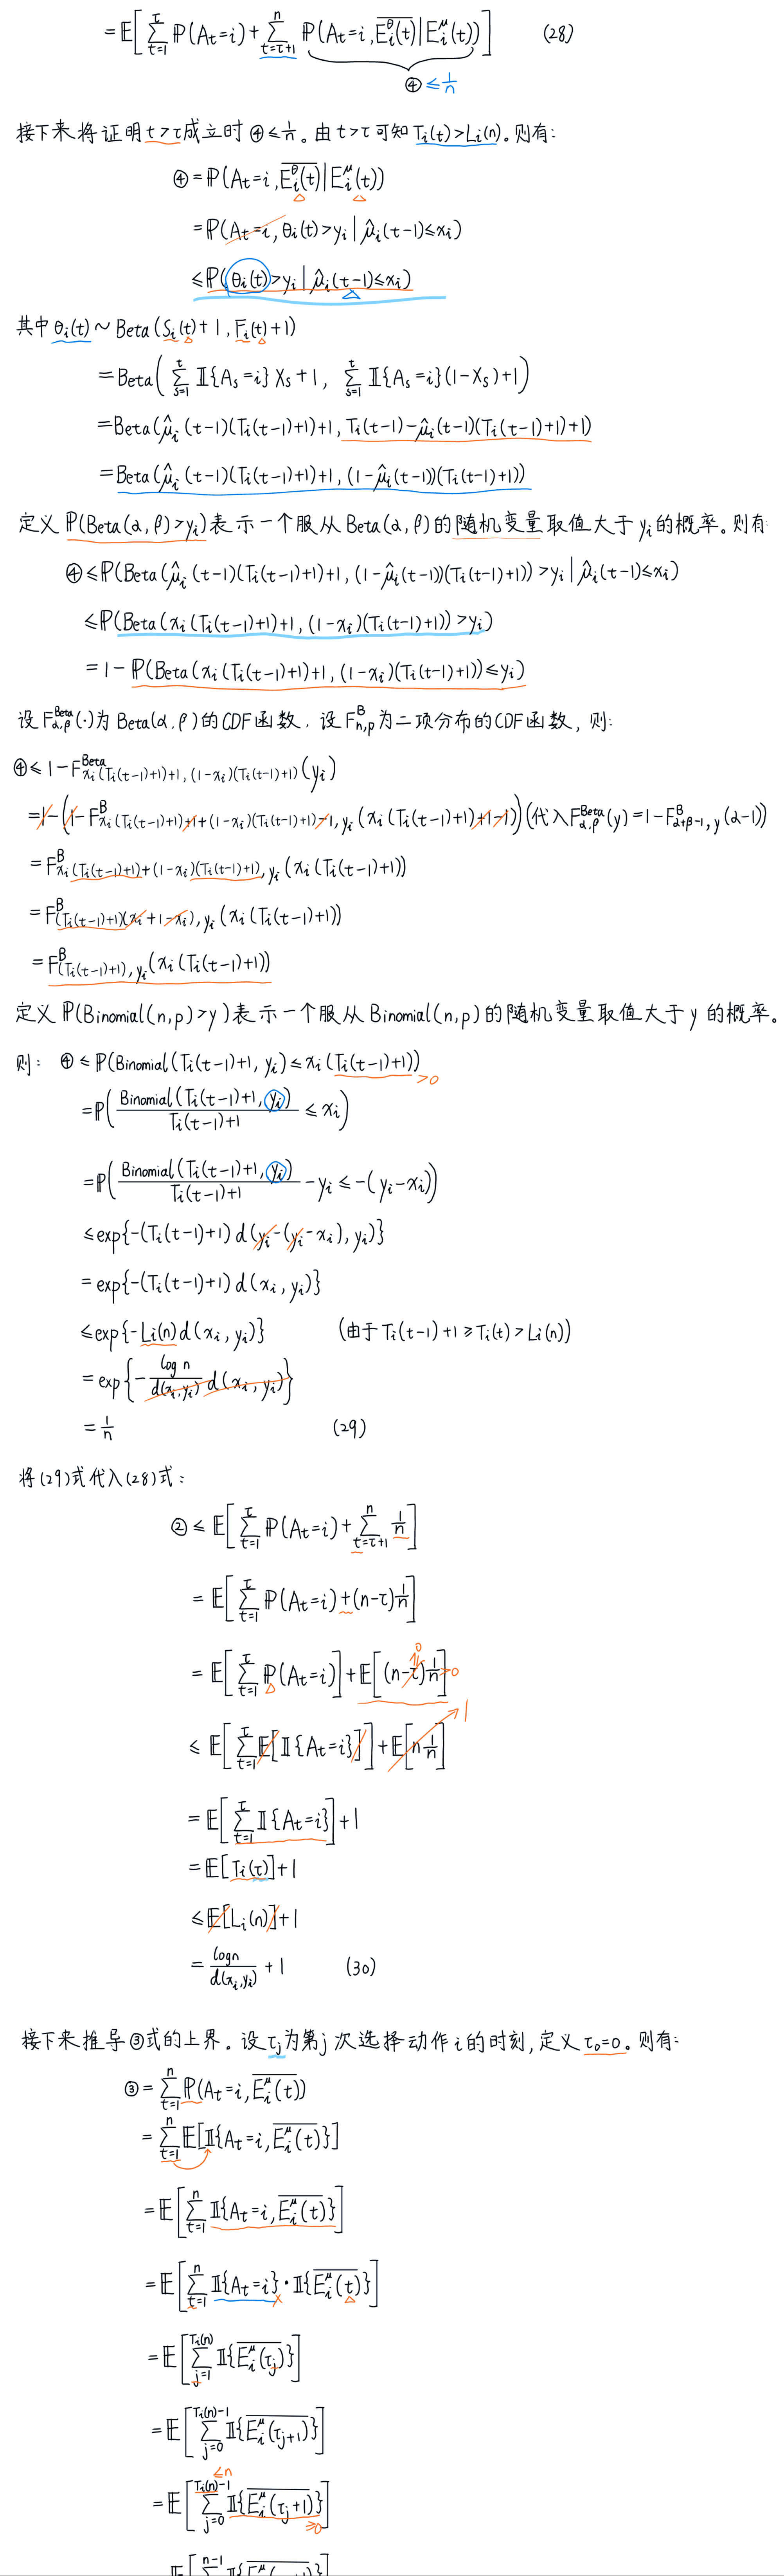 = 𝔼[∑_{t=1}^{τ} ℙ(A_t=i) + ∑_{t=τ+1}^{n} ℙ(A_t=i, \overline{E_i^θ(t)} | E_i^μ(t))] (28)
④ ≤ 1/n
接下来将证明 t>τ 成立时 ④ ≤ 1/n。由 t>τ 可知 T_i(t)>L_i(n)。则有:
④ = ℙ(A_t=i, \overline{E_i^θ(t)} | E_i^μ(t))
= ℙ(A_t=i, θ_i(t)>y_i | μ̂_i(t-1)≤x_i)
≤ ℙ(θ_i(t)>y_i | μ̂_i(t-1)≤x_i)
其中 θ_i(t) ~ Beta(S_i(t)+1, F_i(t)+1)
= Beta(∑_{s=1}^{t} 𝕀{A_s=i} X_s+1, ∑_{s=1}^{t} 𝕀{A_s=i}(1-X_s)+1)
= Beta(μ̂_i(t-1)(T_i(t-1)+1)+1, T_i(t-1)-μ̂_i(t-1)(T_i(t-1)+1)+1)
= Beta(μ̂_i(t-1)(T_i(t-1)+1)+1, (1-μ̂_i(t-1))(T_i(t-1)+1))
定义 ℙ(Beta(α,β)>y_i)表示一个服从 Beta(α,β)的随机变量取值大于 y_i 的概率。则有:
④ ≤ ℙ(Beta(μ̂_i(t-1)(T_i(t-1)+1)+1, (1-μ̂_i(t-1))(T_i(t-1)+1))>y_i | μ̂_i(t-1)≤x_i)
≤ ℙ(Beta(x_i(T_i(t-1)+1)+1, (1-x_i)(T_i(t-1)+1))>y_i)
= 1-ℙ(Beta(x_i(T_i(t-1)+1)+1, (1-x_i)(T_i(t-1)+1))≤y_i)
设 F^{Beta}_{α,β}(·)为 Beta(α,β)的CDF函数, 设 F^B_{n,p}为二项分布的CDF函数, 则:
④ ≤ 1-F^{Beta}_{x_i(T_i(t-1)+1)+1, (1-x_i)(T_i(t-1)+1)}(y_i)
= 1-(1-F^B_{x_i(T_i(t-1)+1)+1+(1-x_i)(T_i(t-1)+1)-1, y_i}(x_i(T_i(t-1)+1)+1-1)) (代入 F^{Beta}_{α,β}(y)=1-F^B_{α+β-1,y}(α-1))
= F^B_{x_i(T_i(t-1)+1)+(1-x_i)(T_i(t-1)+1), y_i}(x_i(T_i(t-1)+1))
= F^B_{(T_i(t-1)+1)(x_i+1-x_i), y_i}(x_i(T_i(t-1)+1))
= F^B_{(T_i(t-1)+1), y_i}(x_i(T_i(t-1)+1))
定义 ℙ(Binomial(n,p)>y)表示一个服从 Binomial(n,p)的随机变量取值大于 y 的概率。
则: ④ ≤ ℙ(Binomial(T_i(t-1)+1, y_i)≤x_i(T_i(t-1)+1)) >0
= ℙ(Binomial(T_i(t-1)+1, y_i)/(T_i(t-1)+1) ≤ x_i)
= ℙ(Binomial(T_i(t-1)+1, y_i)/(T_i(t-1)+1) - y_i ≤ -(y_i-x_i))
≤ exp{-(T_i(t-1)+1) d(y_i-(y_i-x_i), y_i)}
= exp{-(T_i(t-1)+1) d(x_i, y_i)}
≤ exp{-L_i(n) d(x_i, y_i)} (由于 T_i(t-1)+1≥T_i(t)>L_i(n))
= exp{-\frac{log n}{d(x_i,y_i)} d(x_i, y_i)}
= 1/n (29)
将(29)式代入(28)式:
② ≤ 𝔼[∑_{t=1}^{τ} ℙ(A_t=i) + ∑_{t=τ+1}^{n} 1/n]
= 𝔼[∑_{t=1}^{τ} ℙ(A_t=i) + (n-τ) 1/n]
= 𝔼[∑_{t=1}^{τ} ℙ(A_t=i)] + 𝔼[(n-τ) 1/n] 0 >0
≤ 𝔼[∑_{t=1}^{τ} 𝔼[𝕀{A_t=i}]] + 𝔼[n 1/n] 1
= 𝔼[∑_{t=1}^{τ} 𝕀{A_t=i}] + 1
= 𝔼[T_i(τ)] + 1
≤ 𝔼[L_i(n)] + 1
= \frac{log n}{d(x_i,y_i)} + 1 (30)
接下来推导③式的上界。设 τ_j 为第 j 次选择动作 i 的时刻, 定义 τ_0=0。则有:
③ = ∑_{t=1}^{n} ℙ(A_t=i, \overline{E_i^μ(t)})
= ∑_{t=1}^{n} 𝔼[𝕀{A_t=i, \overline{E_i^μ(t)}}]
= 𝔼[∑_{t=1}^{n} 𝕀{A_t=i, \overline{E_i^μ(t)}}]
= 𝔼[∑_{t=1}^{n} 𝕀{A_t=i}·𝕀{\overline{E_i^μ(t)}}]
= 𝔼[∑_{j=1}^{T_i(n)} 𝕀{\overline{E_i^μ(τ_j)}}]
= 𝔼[∑_{j=0}^{T_i(n)-1} 𝕀{\overline{E_i^μ(τ_{j+1})}}]
≤n
= 𝔼[∑_{j=0}^{T_i(n)-1} 𝕀{\overline{E_i^μ(τ_{j+1})}}] ≥0